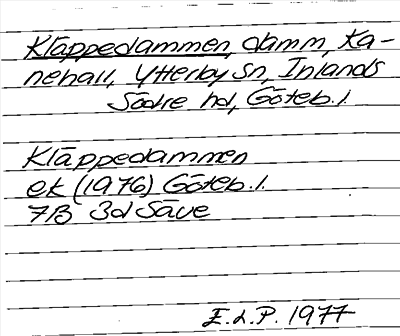 Kläppedammen, damm, Ka-
nehall, Ytterby sn, Inlands
Södre hd, Göteb. l.
Kläppedammen
ek (1976) Göteb. l.
7B 3d Säve
E.L.P. 1977